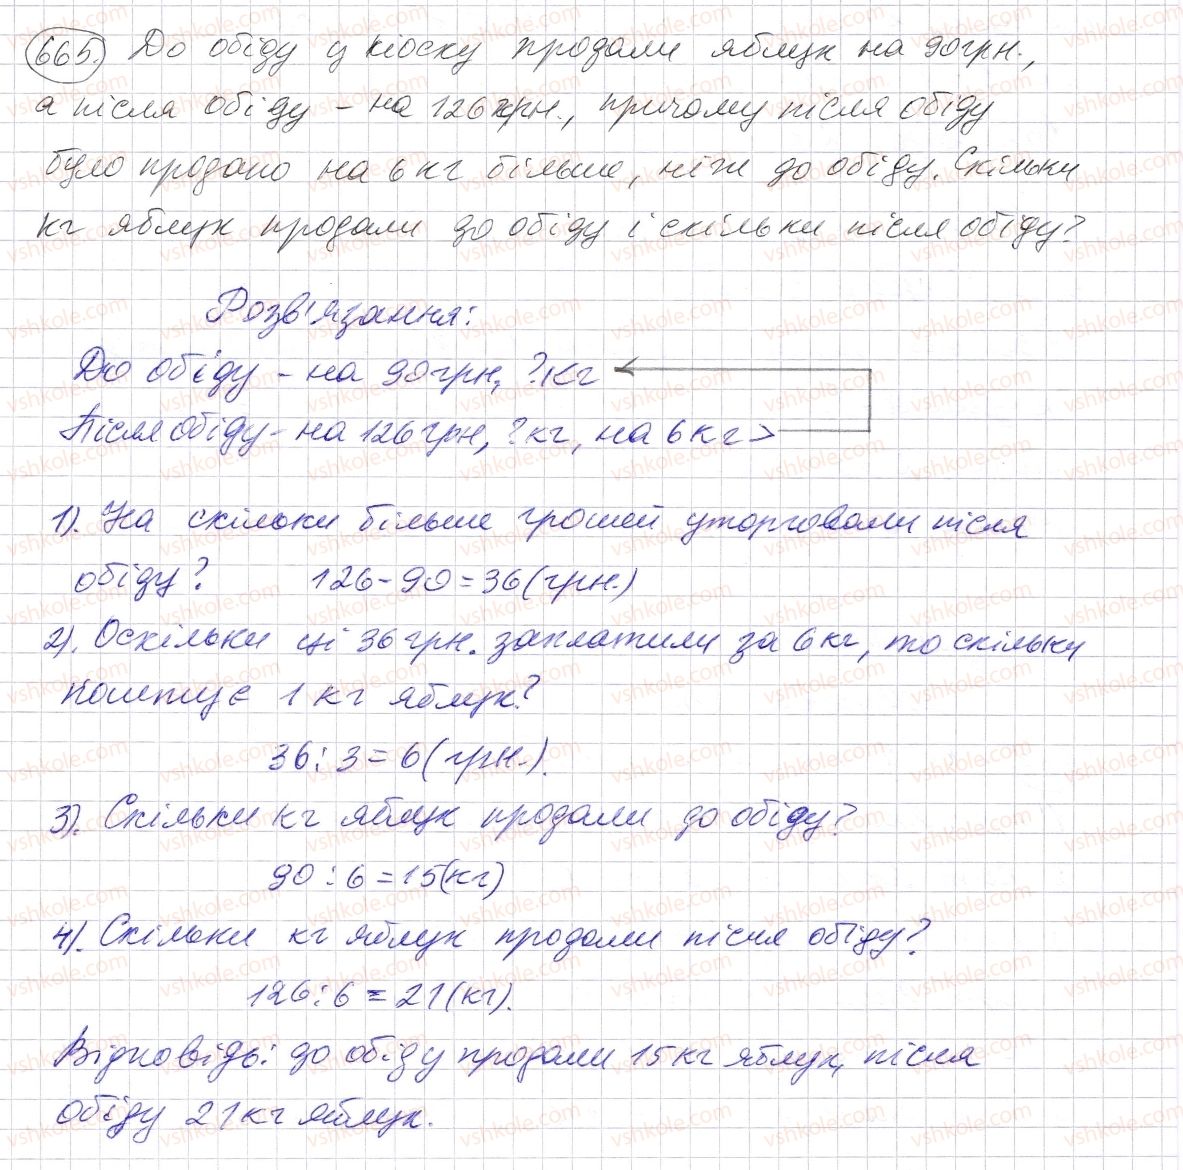 665. До обіду у кіоску продали яблук на 90 грн.,
а після обіду - на 126 грн., причому після обіду
було продано на 6 кг більше, ніж до обіду. Скільки
кг яблук продали до обіду і скільки після обіду?
Розв'язання:
До обіду - на 90 грн, ? кг
Після обіду - на 126 грн, ? кг, на 6 кг >
1). На скільки більше грошей уторговали після
обіду? 126 - 90 = 36 (грн.)
2). Оскільки ці 36 грн. заплатили за 6 кг, то скільки
коштує 1 кг яблук?
36 : 3 = 6 (грн.).
3). Скільки кг яблук продали до обіду?
90 : 6 = 15 (кг)
4). Скільки кг яблук продали після обіду?
126 : 6 = 21 (кг).
Відповідь: до обіду продали 15 кг яблук, після
обіду 21 кг яблук.